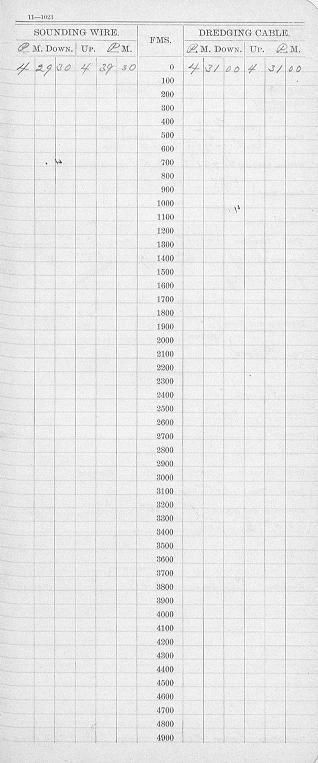 11—1023
SOUNDING WIRE. FMS. DREDGING CABLE.
P. M. DOWN. UP. P. M. P. M. DOWN. UP. P. M.
4 29 30 4 39 30 0 4 31 00 4 31 00
100
200
300
400
500
600
700
800
900
1000
1100
1200
1300
1400
1500
1600
1700
1800
1900
2000
2100
2200
2300
2400
2500
2600
2700
2800
2900
3000
3100
3200
3300
3400
3500
3600
3700
3800
3900
4000
4100
4200
4300
4400
4500
4600
4700
4800
4900